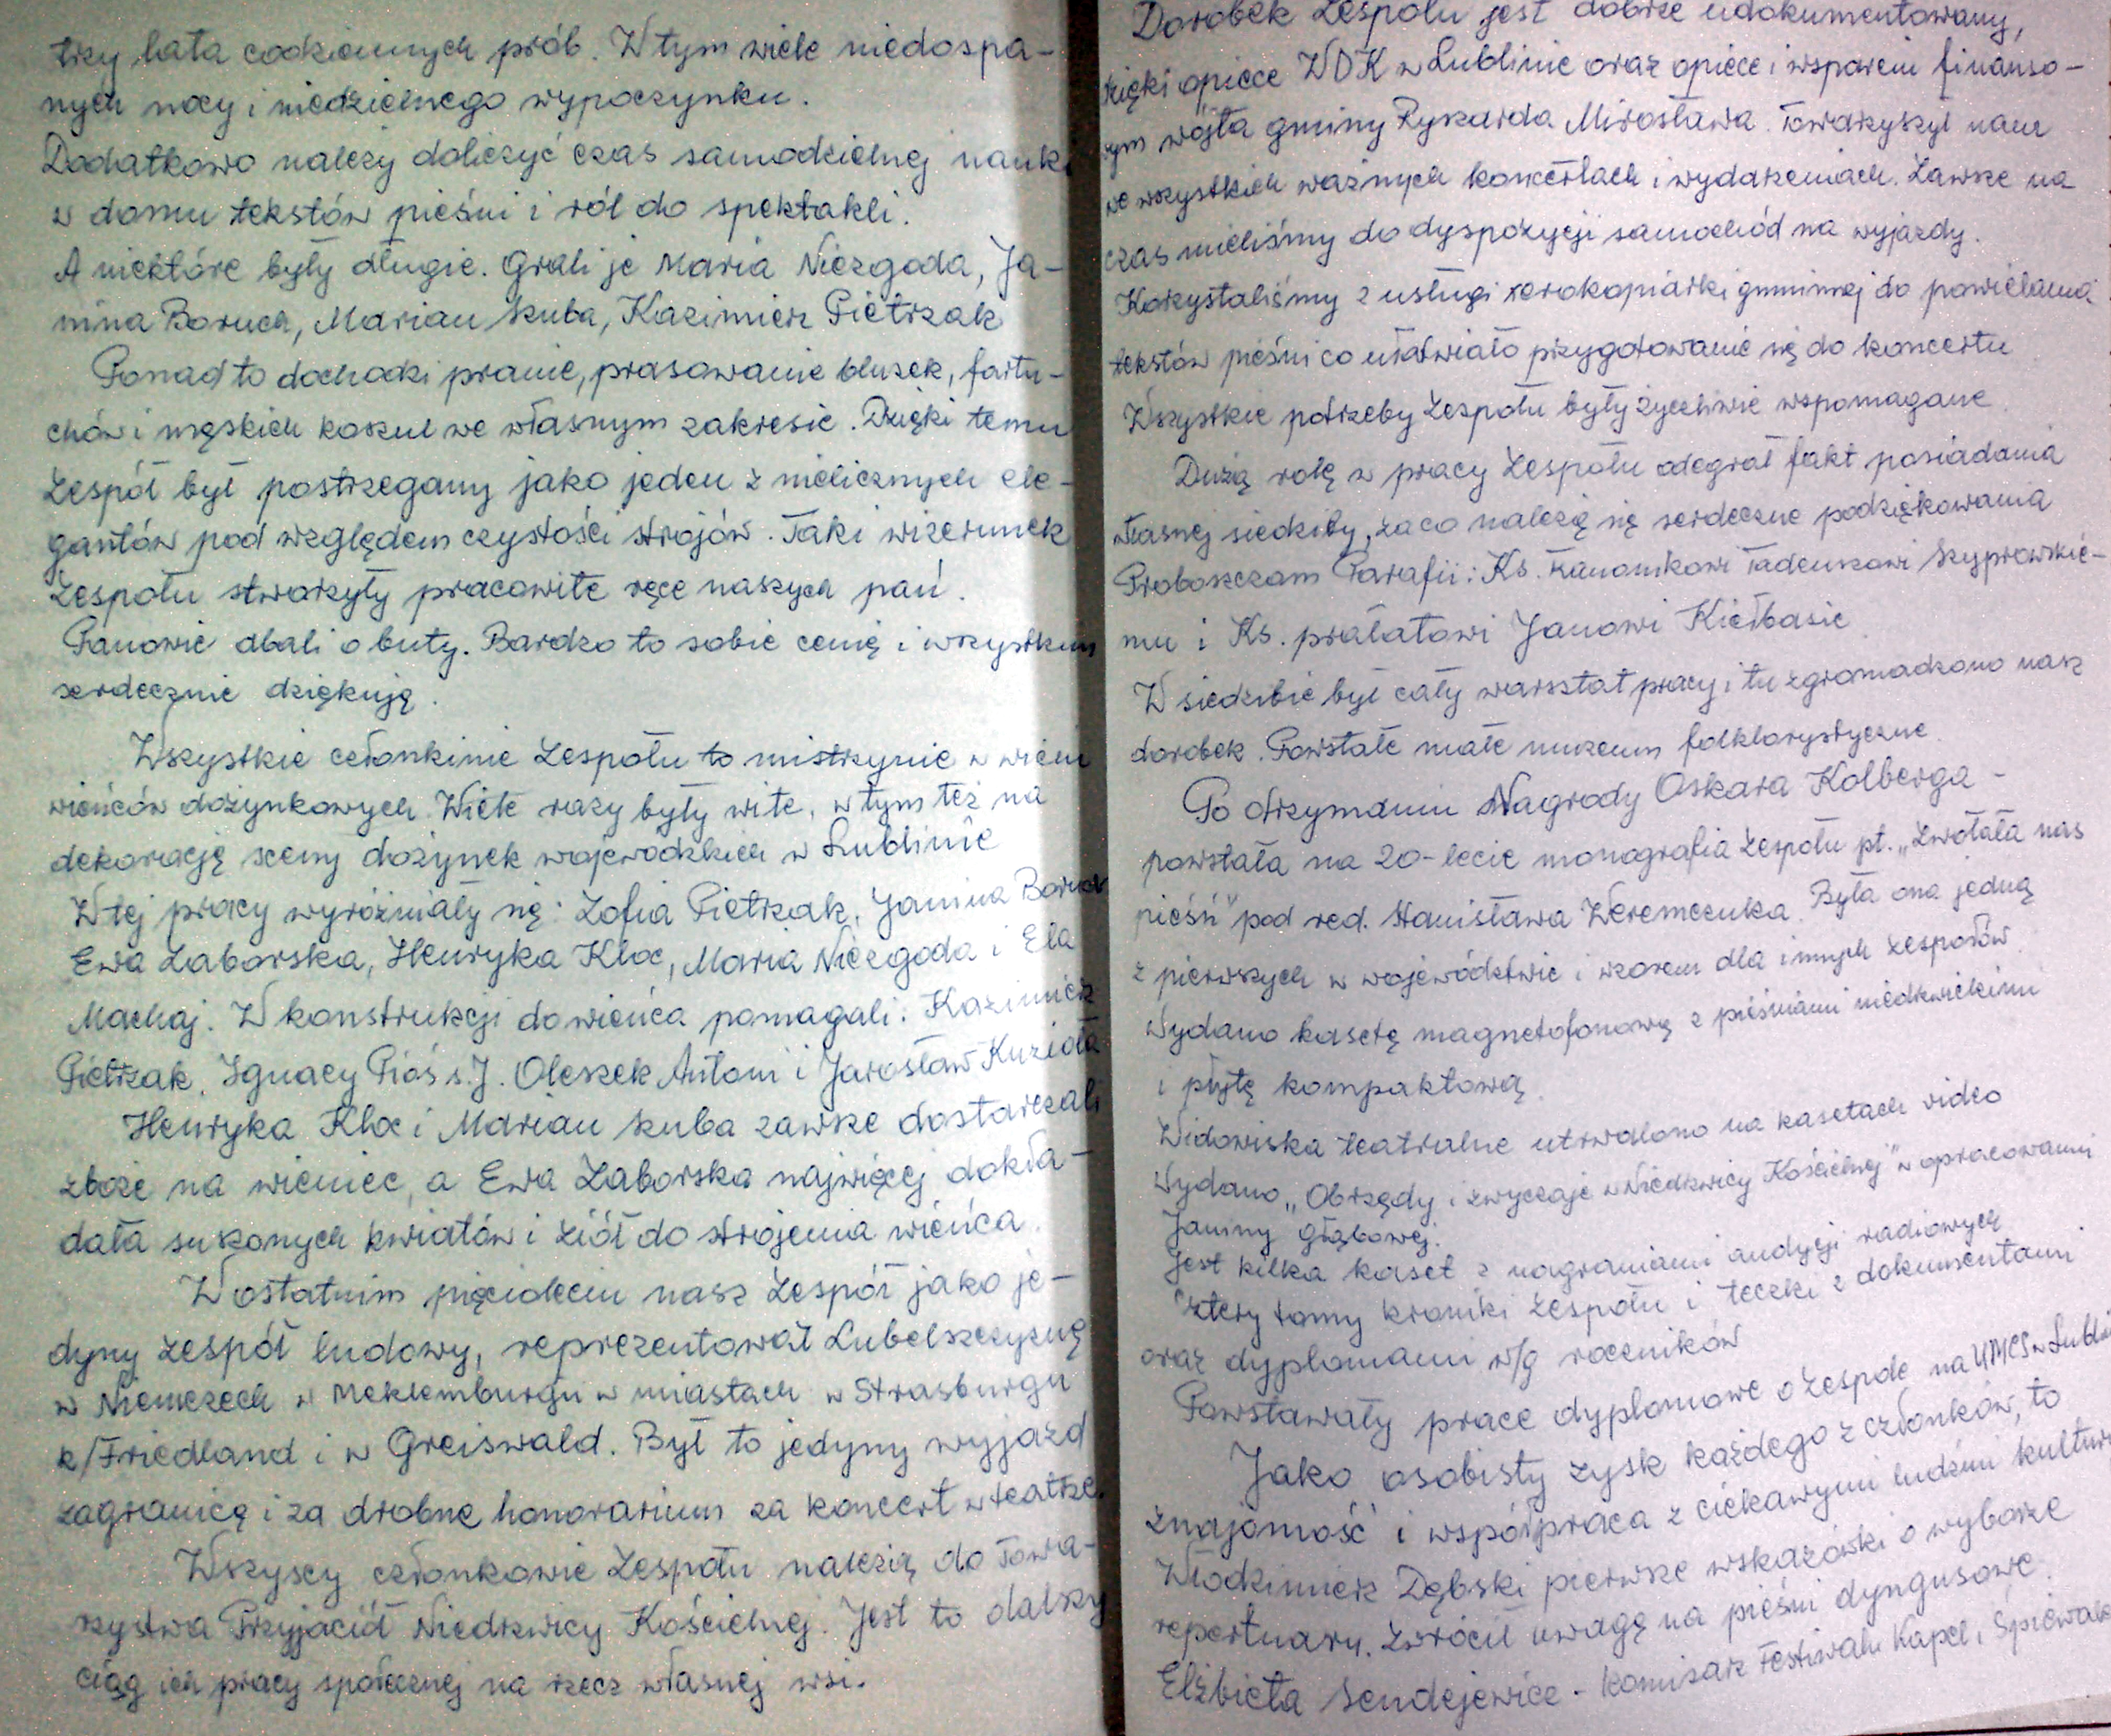 trzy lata codziennych prób. W tym wiele niedospa-
nych nocy i niedzielnego wypoczynku.
Dodatkowo należy doliczyć czas samodzielnej nauki
w domu tekstów pieśni i ról do spektakli.
A niektóre były długie. Grali je Maria Niezgoda, Ja-
nina Boruch, Marian Skuba, Kazimierz Pietrzak
Ponad to dochodzi pranie, prasowanie bluzek, fartu-
chów i męskich koszul we własnym zakresie. Dzięki temu
Zespół był postrzegany jako jeden z nielicznych ele-
gantów pod względem czystości strojów. Taki wizerunek
Zespołu stworzyły pracowite ręce naszych pań.
Panowie dbali o buty. Bardzo to sobie cenię i wszystkim
serdecznie dziękuję.
Wszystkie członkinie Zespołu to mistrzynie w wiciu
wieńców dożynkowych. Wiele razy były wite, w tym też na
dekorację sceny dożynek wojewódzkich w Lublinie
W tej pracy wyróżniały się: Zofia Pietrzak, Janina Boruch
Ewa Zaborska, Henryka Kloc, Maria Niezgoda i Ela
Machaj. W konstrukcji do wieńca pomagali: Kazimierz
Pietrzak, Ignacy Pióś s.J. Oleszek Antoni i Jarosław Kuzioła
Henryka Kloc i Marian Skuba zawsze dostarczali
zboże na wieniec, a Ewa Zaborska najwięcej dokła-
dała suszonych kwiatów i ziół do strojenia wieńca.
W ostatnim pięcioleciu nasz Zespół jako je-
dyny zespół ludowy, reprezentował Lubelszczyznę
w Niemczech w Meklemburgu w miastach w Strasburgu
k/Friedland i w Greiswald. Był to jedyny wyjazd
zagranicę i za drobne honorarium za koncert w teatrze.
Wszyscy członkowie Zespołu należą do Towa-
rzystwa Przyjaciół Niedrzwicy Kościelnej. Jest to dalszy
ciąg ich pracy społecznej na rzecz własnej wsi.
Dorobek Zespołu jest dobrze udokumentowany,
dzięki opiece WDK w Lublinie oraz opiece i wsparciu finanso-
wym wójta gminy Ryszarda Mirosława. Towarzyszył nam
we wszystkich ważnych koncertach i wydarzeniach. Zawsze na
czas mieliśmy do dyspozycji samochód na wyjazdy.
Korzystaliśmy z usługi xerokopiarki gminnej do powielania
tekstów pieśni co ułatwiało przygotowanie się do koncertu
Wszystkie potrzeby Zespołu były życzliwie wspomagane
Dużą rolę w pracy Zespołu odegrał fakt posiadania
własnej siedziby, za co należą się serdeczne podziękowania
Proboszczom Parafii: Ks. Kanonikowi Tadeuszowi Szyprowskie-
mu i Ks. prałatowi Janowi Kiełbasie
W siedzibie był cały warsztat pracy i tu zgromadzono nasz
dorobek. Powstałe małe muzeum folklorystyczne.
Po otrzymaniu Nagrody Oskara Kolberga -
powstała na 20-lecie monografia Zespołu pt. „Zwołała nas
pieśń" pod red. Stanisława Weremczuka. Była ona jedną
z pierwszych w województwie i wzorem dla innych zespołów.
Wydano kasetę magnetofonową z pieśniami niedrzwickimi
i płytę kompaktową.
Widowiska teatralne utrwalono na kasetach video
Wydano „Obrzędy i zwyczaje w Niedrzwicy Kościelnej" w opracowaniu
Janiny Głąbowej.
Jest kilka kaset z nagraniami audycji radiowych
Cztery tomy kroniki Zespołu i teczki z dokumentami
oraz dyplomami w/g roczników
Powstawały prace dyplomowe o zespole na UMCS w Lublinie
Jako osobisty zysk każdego z członków, to
znajomość i współpraca z ciekawymi ludźmi kultury
Włodzimierz Dębski pierwsze wskazówki o wyborze
repertuaru. Zwrócił uwagę na pieśni dyngusowe.
Elżbieta Sendejewicz - komisarz Festiwalu Kapel i Śpiewaków